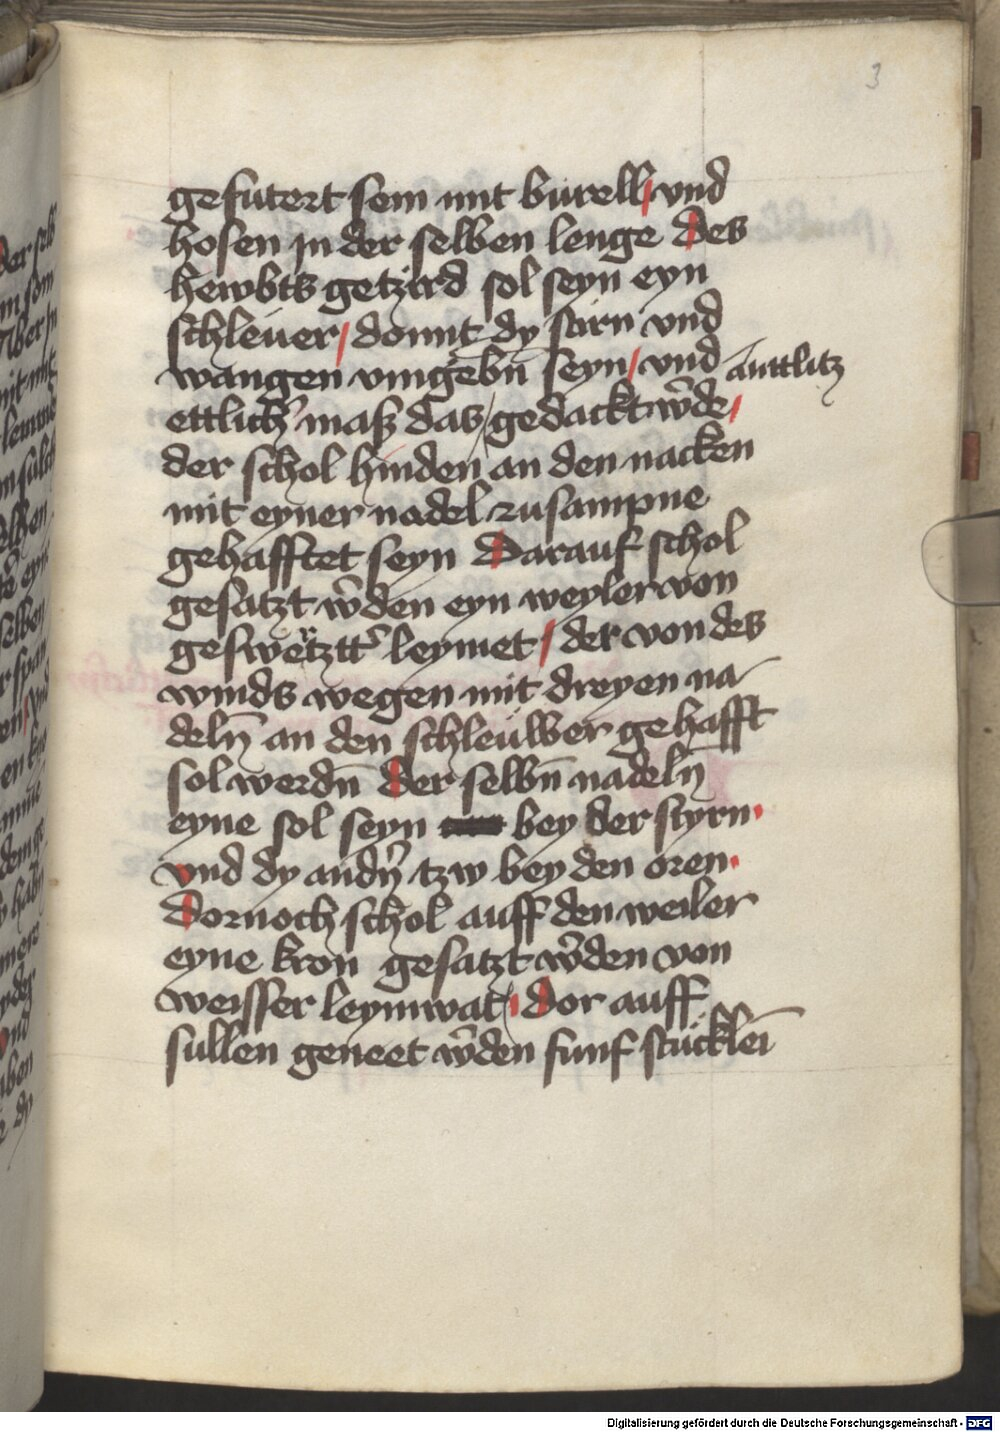 3
gefutert sein mit burell / vnd
hosen jn der selben lenge Des
hewbts getzird sol seyn eyn
schleuer / domit dy stirn vnd
wangen vmgebn̄ seyn / vnd antlitz
ettlich' mass das / gedackt w'de /
der schol hinden an den nacken
mit eyner nodel zusampne
gehafftet seyn Darauf schol
gesatzt w'den eyn weyler von
geswetztt' leymet / der von des
winds wegen mit dreyen na
deln̄ an den schleuwer gehafft
sol werdn̄ Der selbn̄ nadeln̄
eyne sol seyn bey der styrn ·
vnd dy andn̄ tzw bey den oren ·
Dornoch schol auff den weiler
eyne kron gesatzt w'den von
weisser leymwat / Dor auff
sullen geneet w'den funf stücklei
Digitalisierung gefördert durch die Deutsche Forschungsgemeinschaft - DFG